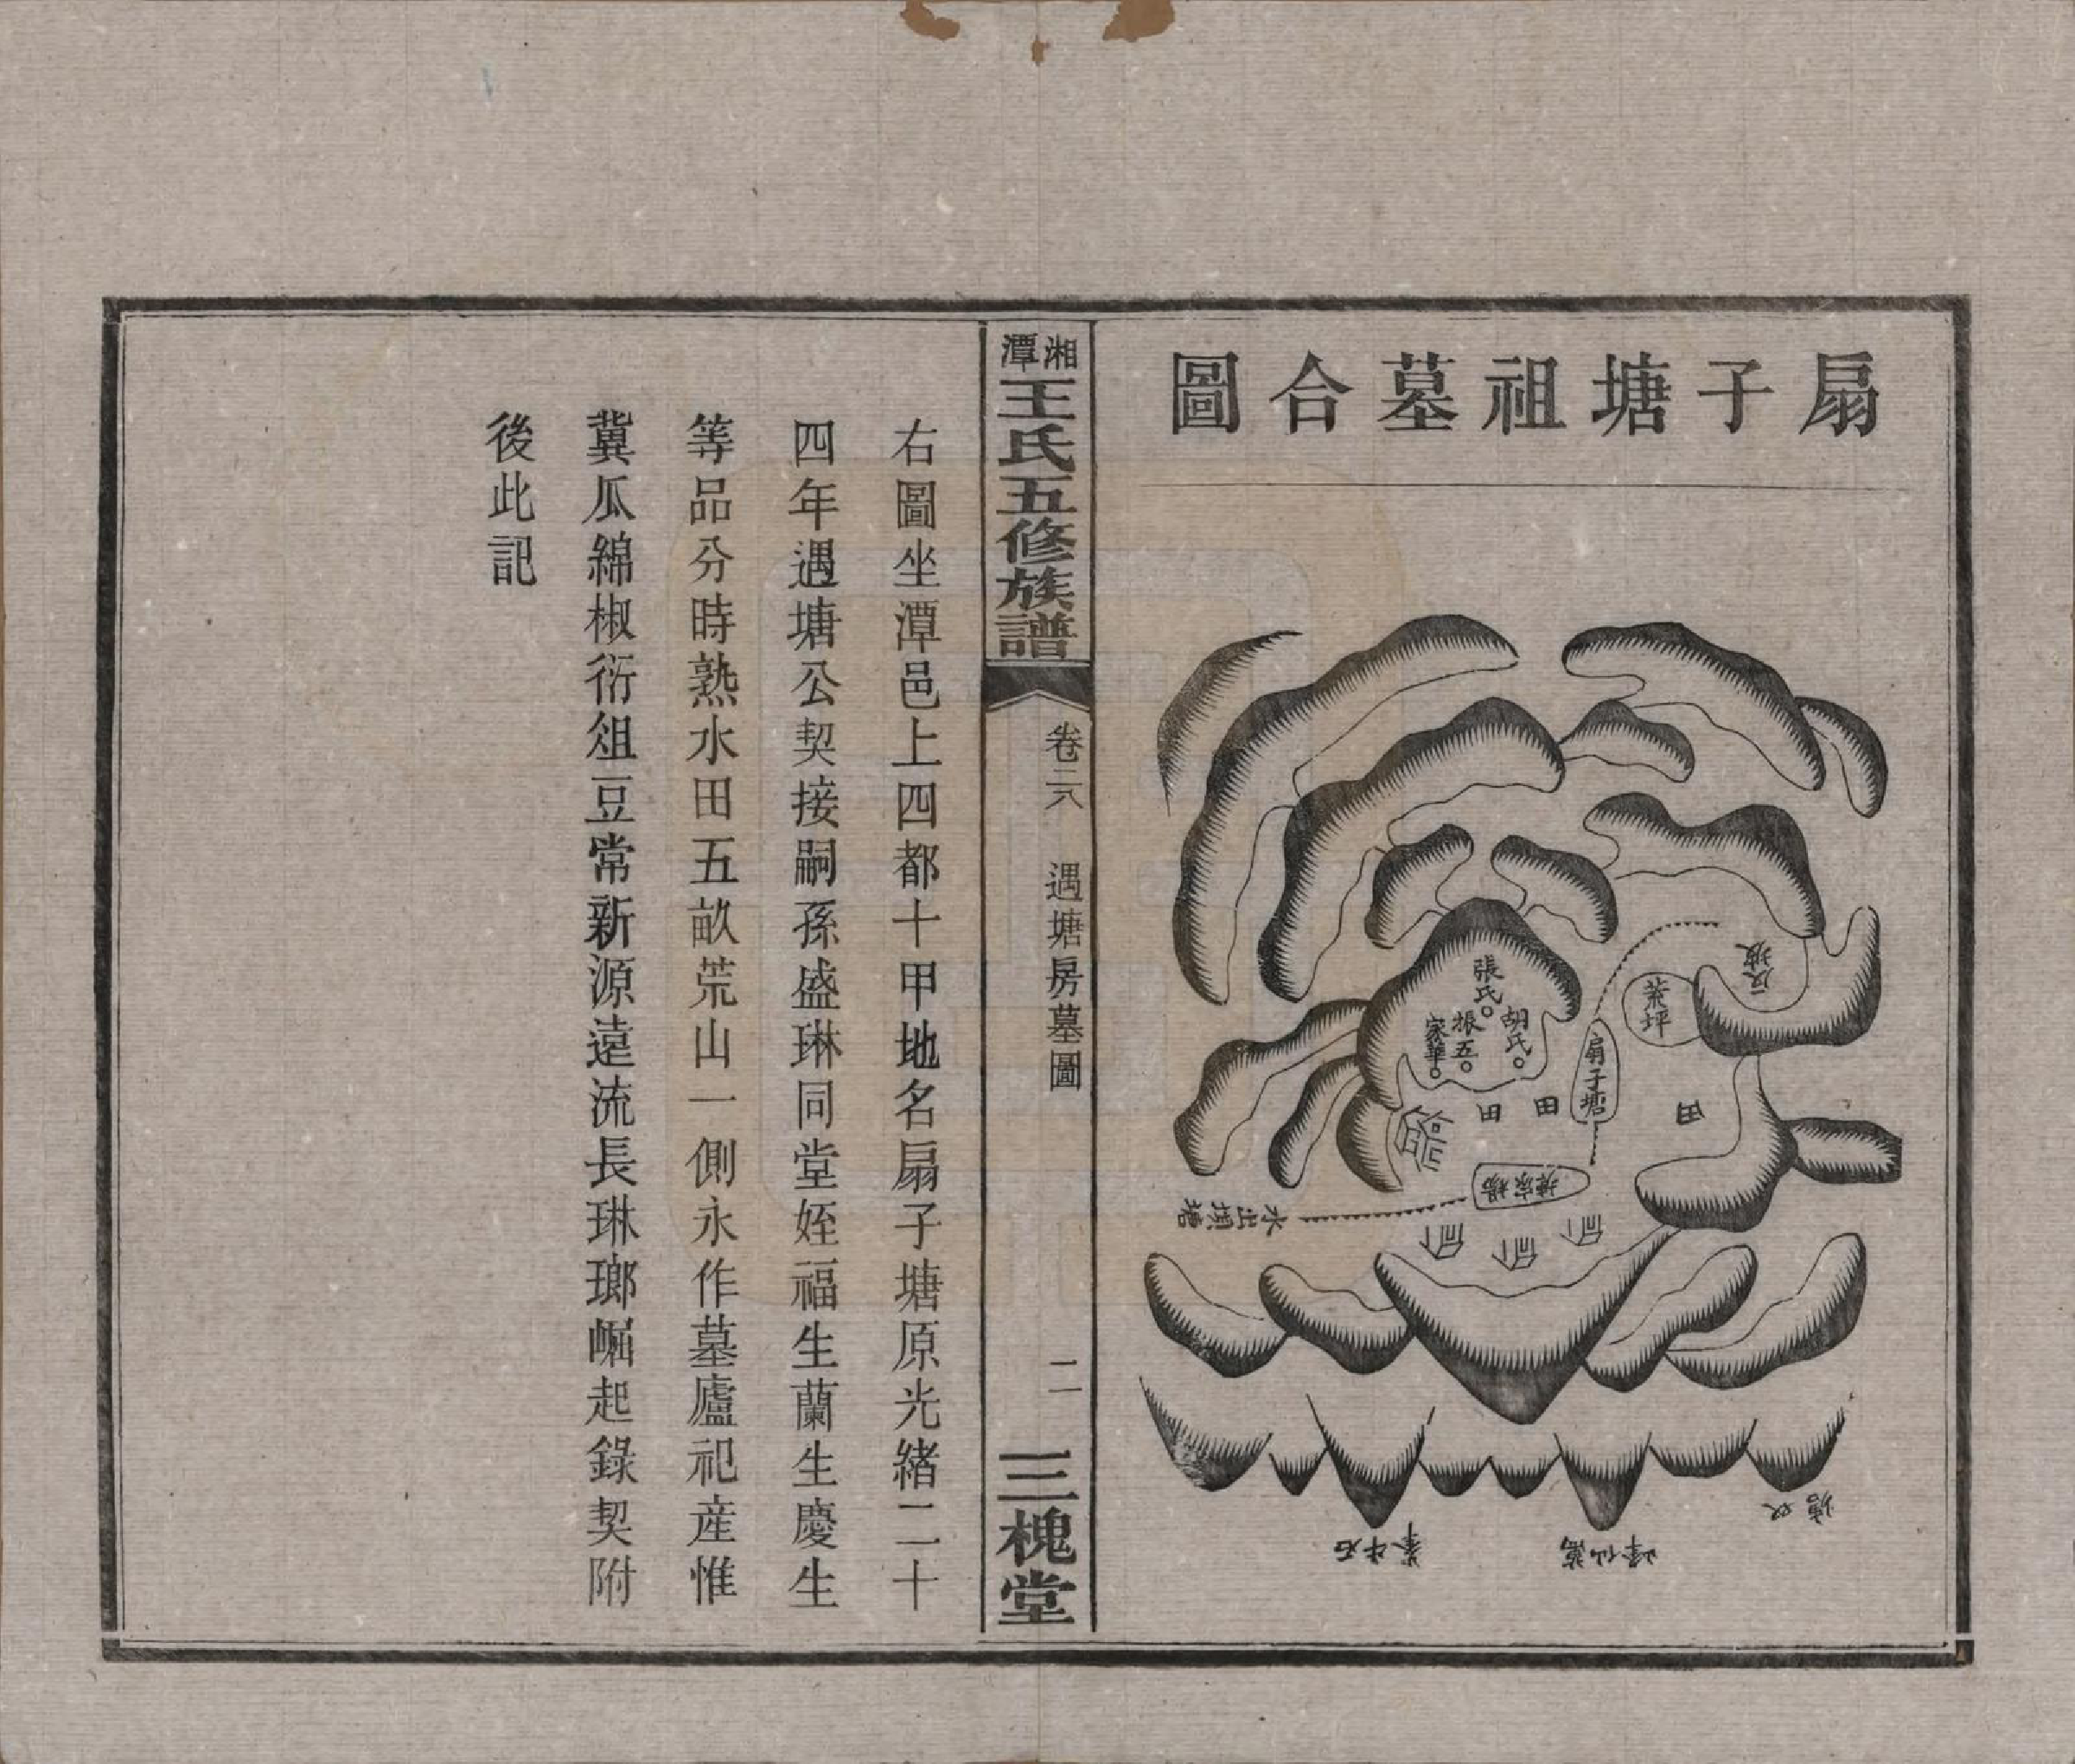 扇子塘祖墓合圖
張氏
胡氏
振五
家華
扇子塘
茶坪
田
田
田
湘潭王氏五修族譜
卷二八
遇塘房墓圖
二一
三槐堂
右圖坐潭邑上四都十甲地名扇子塘原光緒二十
四年遇塘公契接嗣孫盛琳同堂姪福生蘭生慶生
等品分時熟水田五畝荒山一側永作墓廬祀產惟
冀瓜綿椒衍俎豆常新源遠流長琳瑯崛起錄契附
後此記